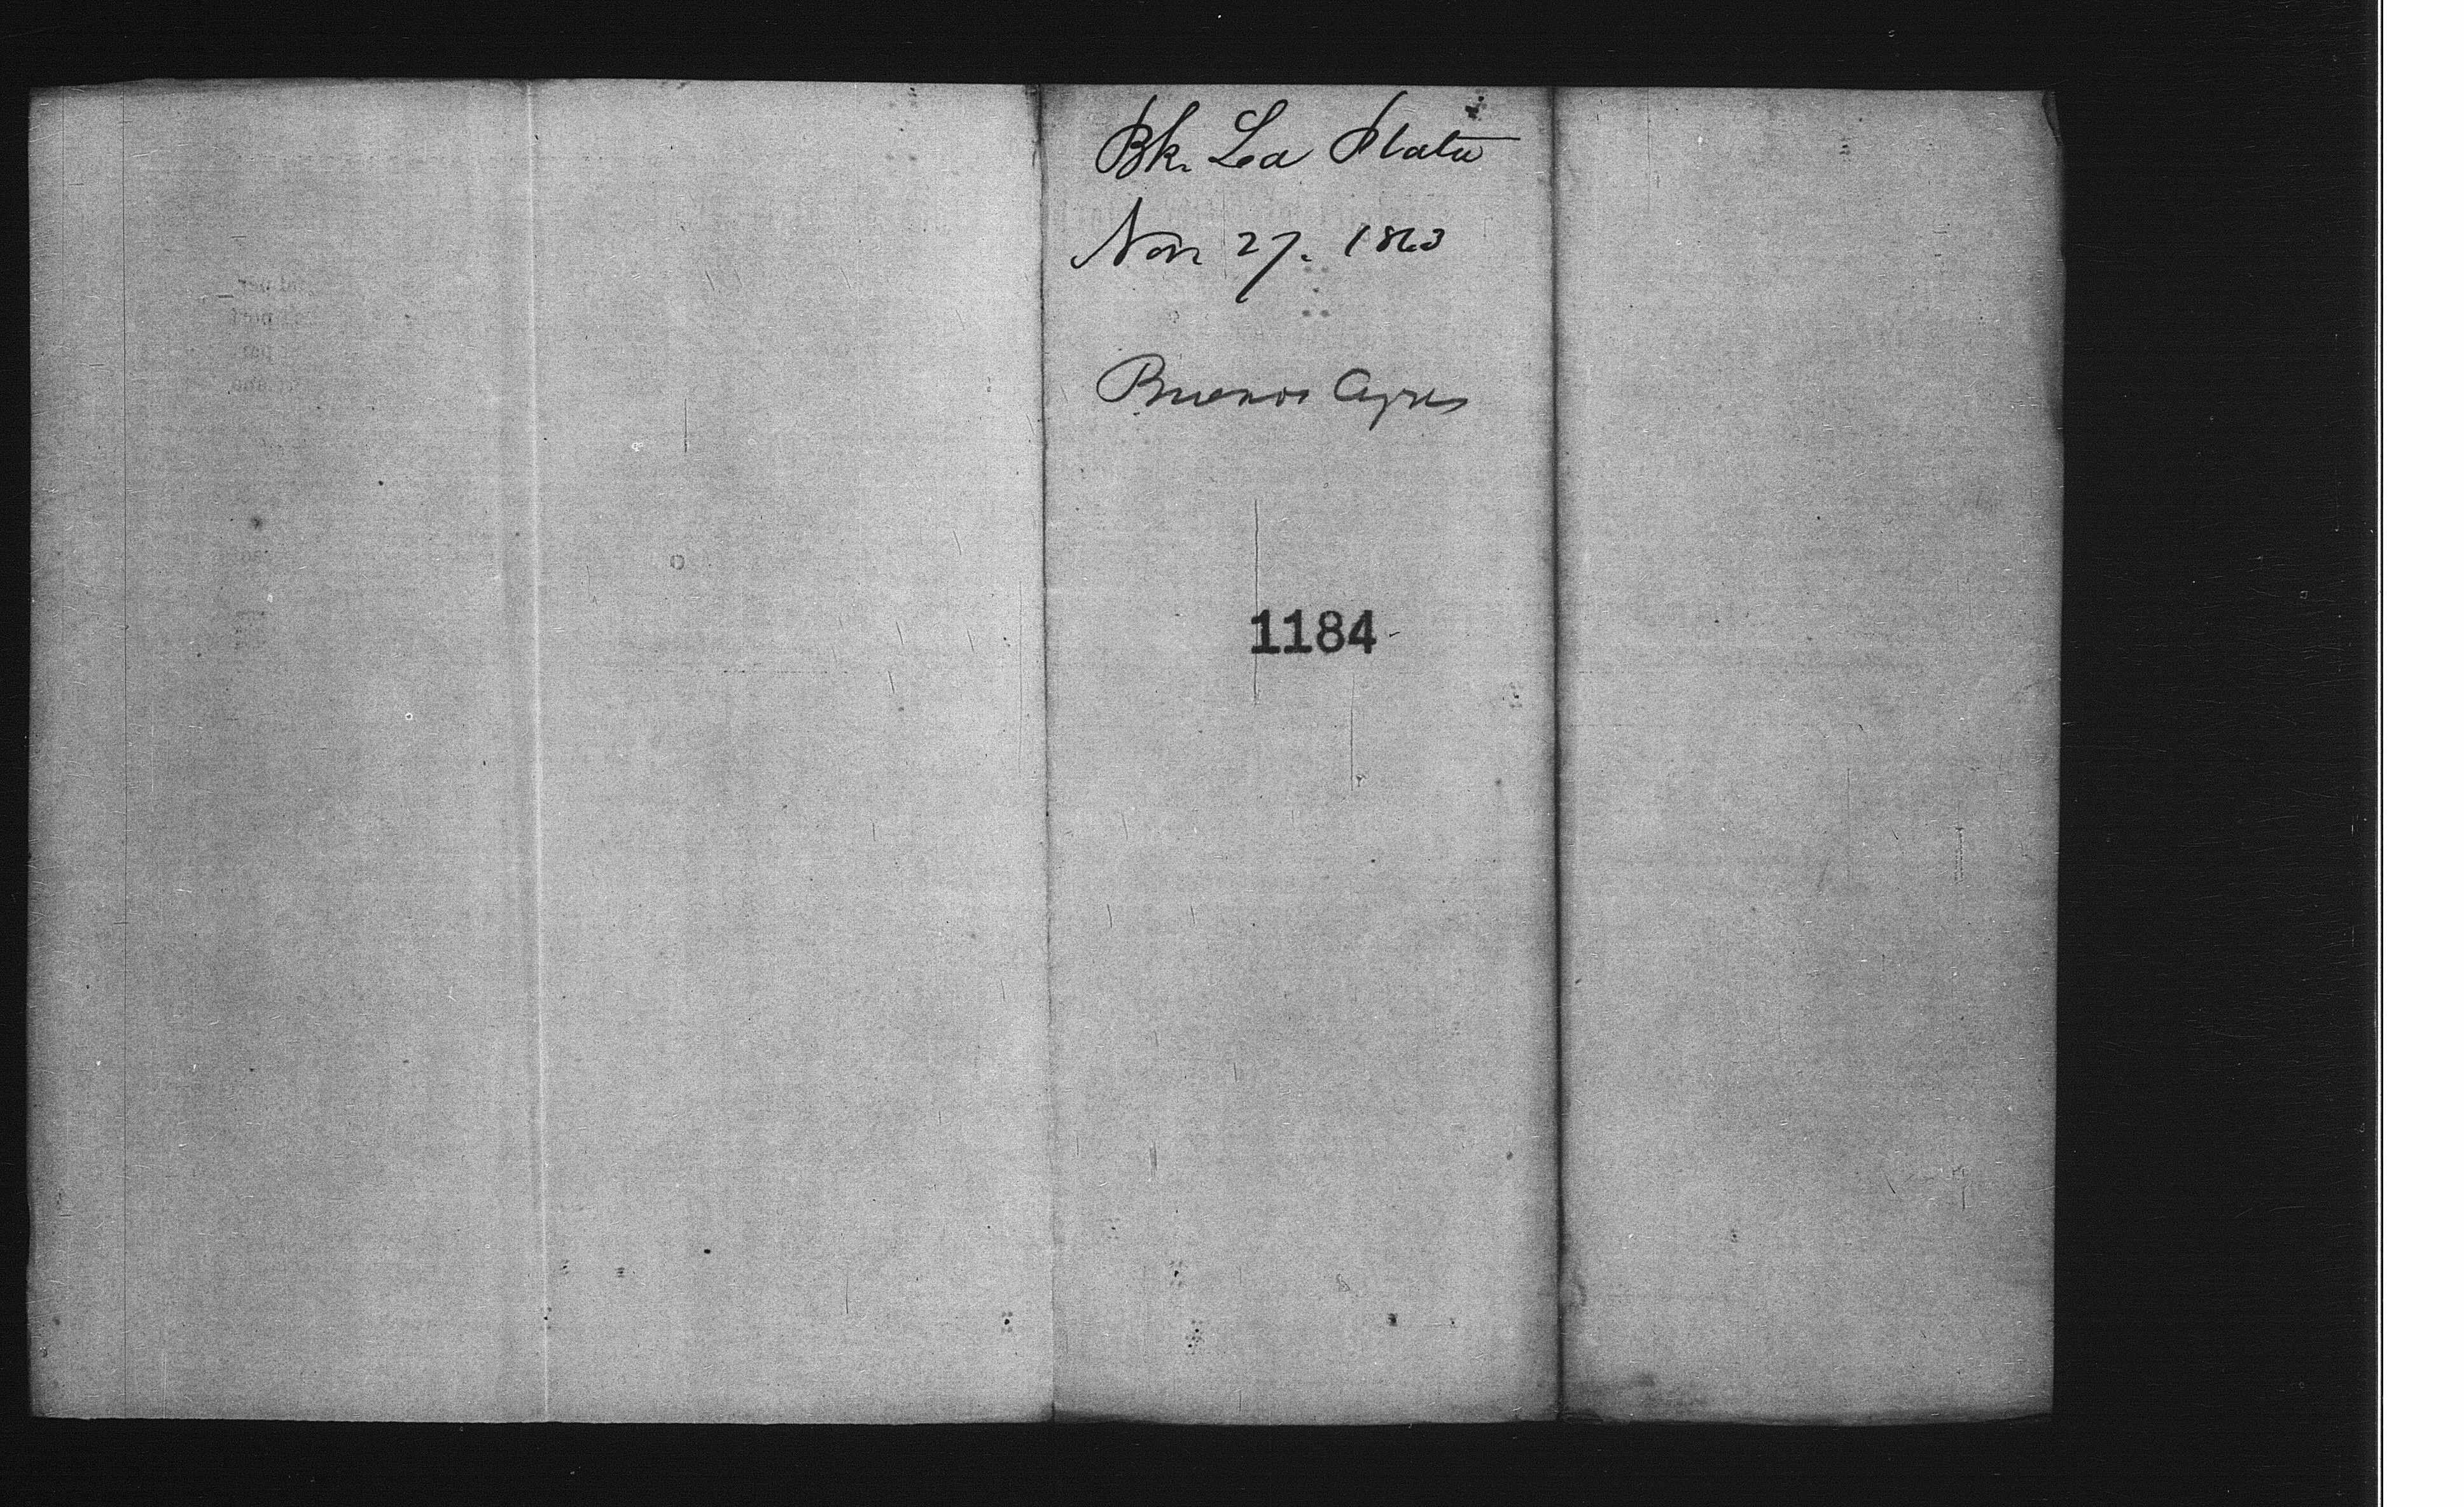 Bk. La Plata
Nov 27. 1863
Buenos Ayres
1184